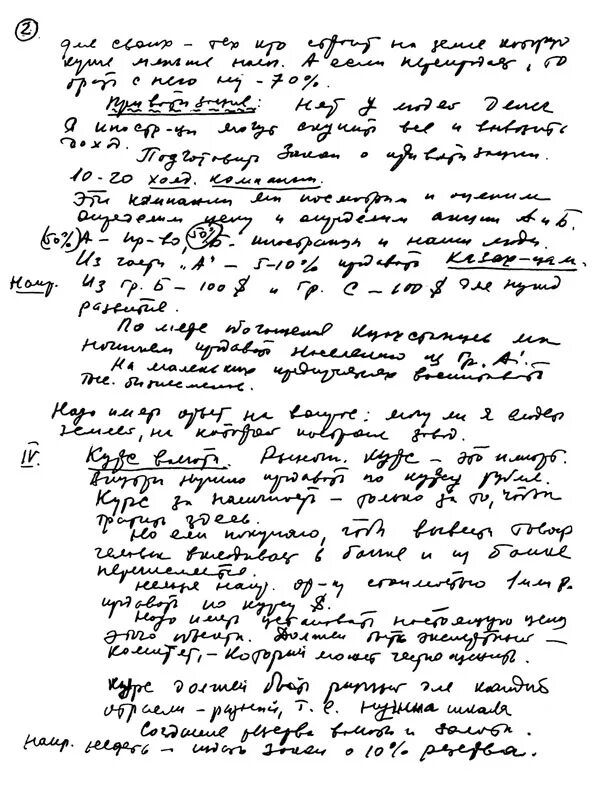 2
для своих – тех кто строит на земле которую
купил меньше налог. А если перепродает, то
брать с него н/ – 70%.
Приватизация: Нет у людей денег
А иностр-цы могут скупить все и вывозить
доход.
Подготовить Закон о приватизации.
10-20 холд. компании.
Эти компании мы посмотрим и оценим
определим цену и определим акции А и Б.
(50%) А – пр-во, (50%) Б. иностранцы и наши люди.
Из части "А" – 5-10% продавать Казах-цам.
Напр. Из гр. Б – 100 $ и гр. С – 100 $ для нужд
развития.
По мере обогащения Казахстанцев мы
начинаем продавать населению из гр. А'.
На маленьких предприятиях воспитывать
бизнесменов.
Надо иметь ответ на вопрос: могу ли я владеть
землей, на которой построил завод.
IV. Курс валюты. Рыночн. курс – это импорт.
Внутри нужно продавать по курсу рубля.
Курс за наличность – только за то, чтобы
тратить здесь.
Но если покупаю, чтоб вывезти товар
человек вкладывает в банке и из банке
перечисляется.
Нельзя напр. ор-ц стоимостью 1 млн р.
продавать по курсу $.
Надо уметь установить настоящую цену
этого объекта. Должен быть экспертный –
комитет, – который может честно оценить.
Курс должен быть разным для каждой
отрасли – разный, т.е. нужна шкала
Создание резерва валюты и золота.
Напр. нефть – издать Закон о 10% резерва.